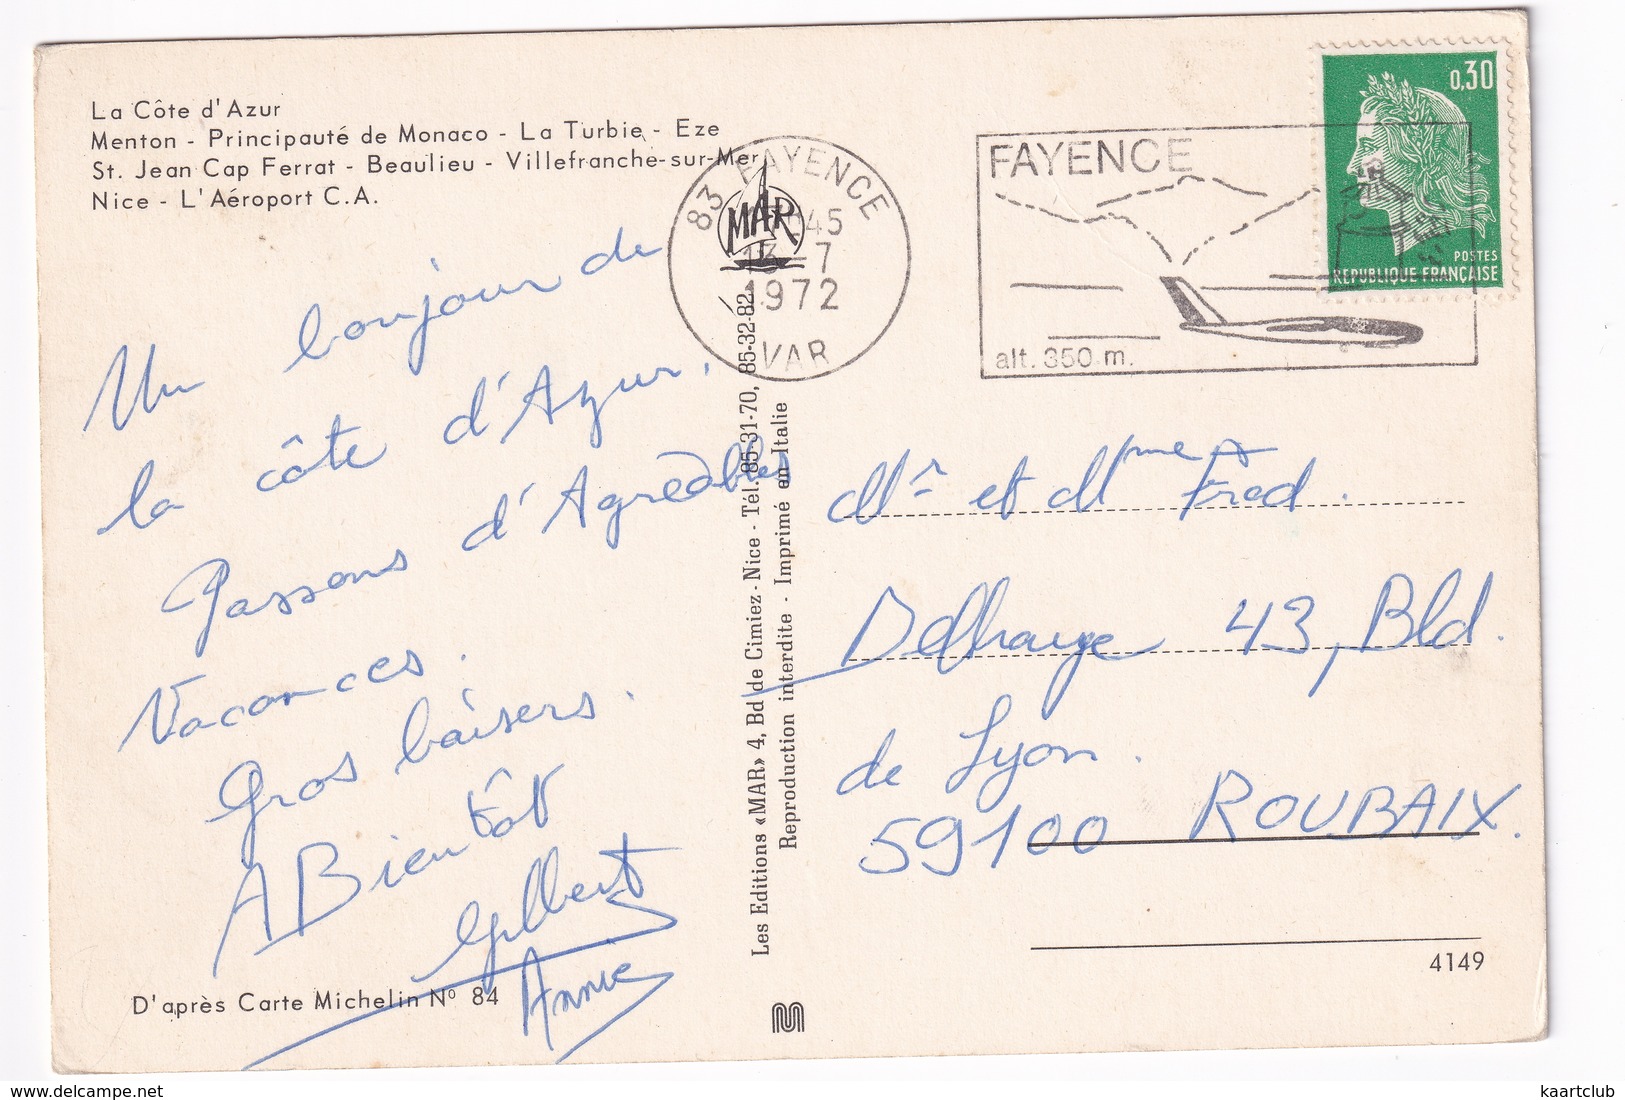 La Côte d'Azur
Menton - Principauté de Monaco - La Turbie - Eze
St. Jean Cap Ferrat - Beaulieu - Villefranche-sur-Mer
Nice - L'Aéroport C.A.
Un bonjour de
la côte d'Azur.
Passons d'Agréables
Vacances.
Gros baisers.
A Bientôt
Gilbert
Annie
D'après Carte Michelin Nº 84
83 FAYENCE
45
13-7
1972
VAR
MAR
Les Editions «MAR» 4, Bd de Cimiez - Nice - Tél. 85-31-70, 85-32-82
Reproduction interdite - Imprimé en Italie
FAYENCE
alt. 350 m.
0,30
POSTES
REPUBLIQUE FRANÇAISE
Mr et Mme Fred.
Delhaye 43, Bld.
de Lyon.
59100 ROUBAIX.
4149
delcampe.net
kaartclub